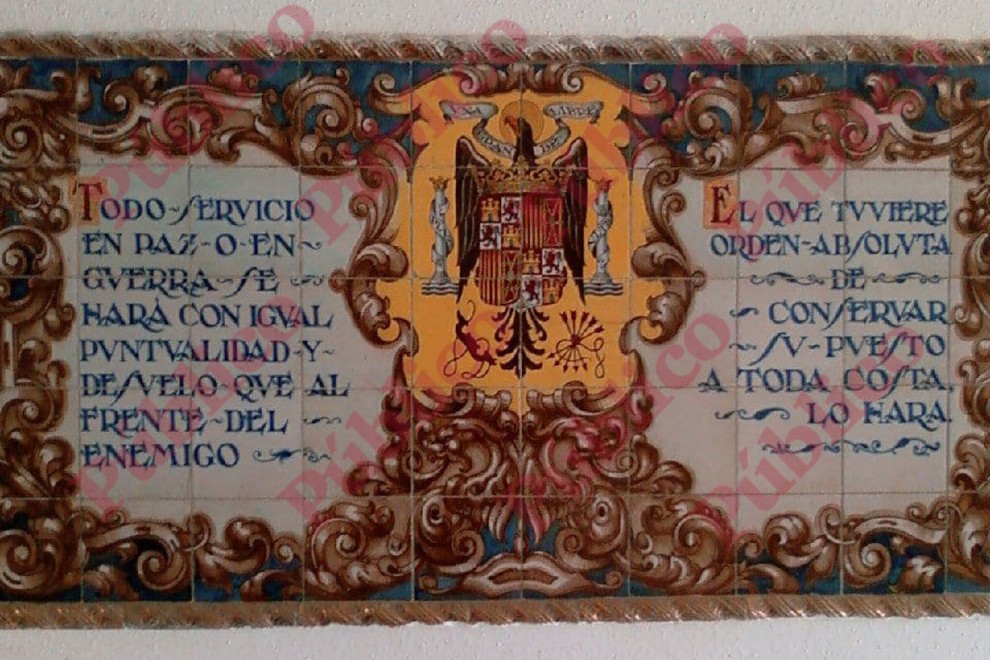 TODO-SERVICIO
EN PAZ-O-EN
GVERRA-SE
HARA CON IGVAL
PVNTVALIDAD-Y-
DESVELO-QVE AL
FRENTE-DEL
ENEMIGO
EL QVE TVVIERE
ORDEN-ABSOLVTA
DE
CONSERVAR
SV-PVESTO
A TODA COSTA,
LO HARA.
Público
Público
Público
Público
Público
Público
Público
Público
Público
Público
Público
Público